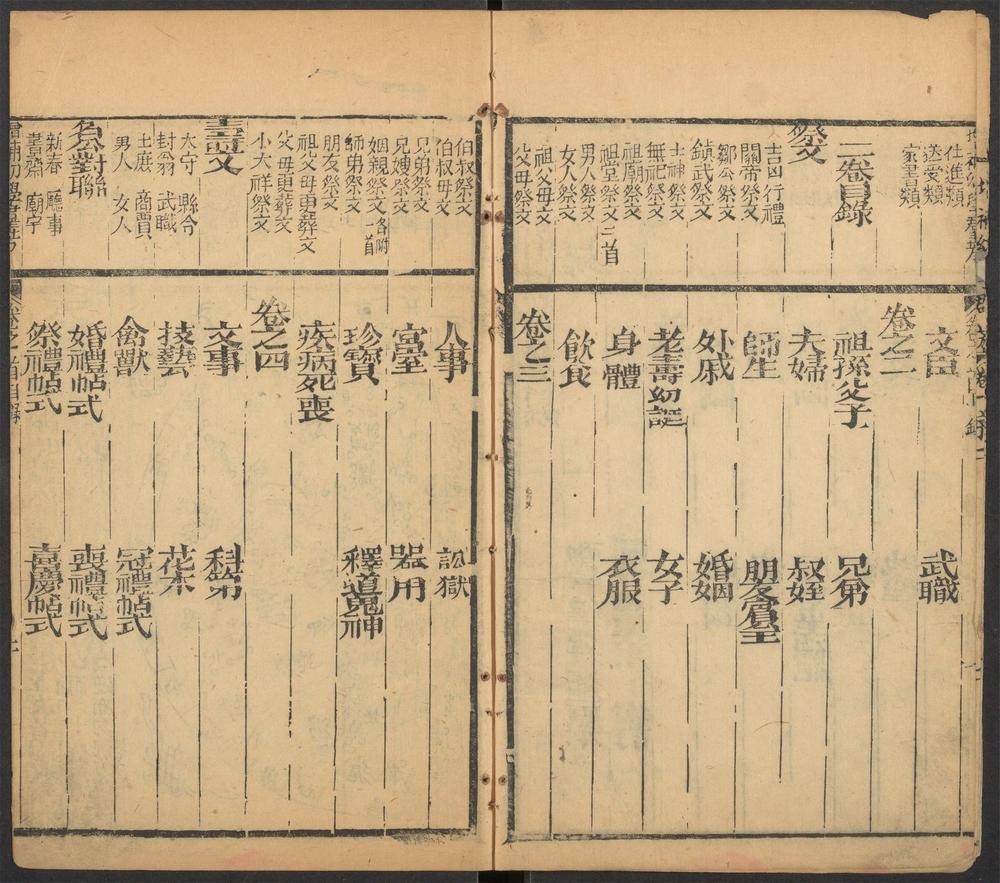 仕進類
送受類
家書類
二卷目錄
祭文
吉凶行禮
關帝祭文
鄒公祭文
鎮武祭文
土神祭文
無祀祭文
祖廟祭文
祖堂祭文 二首
男人祭文
女人祭文
祖父母文
父母祭文
文臣
武職
卷之二
祖孫父子
兄弟
夫婦
叔姪
師生
朋友賓主
外戚
婚姻
老壽幼誕
女子
身體
衣服
飲食
卷之三
伯叔祭文
伯叔母文
兄弟祭文
兄嫂祭文
姻親祭文 各附一首
師弟祭文
朋友祭文
祖父母再葬文
父母再葬文
小大祥祭文
壽文
大守 縣令
封翁 武職
士庶 商賈
男人 女人
各對聯
新春 廳事
書齋 廟宇
人事
訟獄
宮室
器用
珍寶
釋道鬼神
疾病死喪
卷之四
文事
科第
技藝
花木
禽獸
冠禮帖式
婚禮帖式
喪禮帖式
祭禮帖式
喜慶帖式